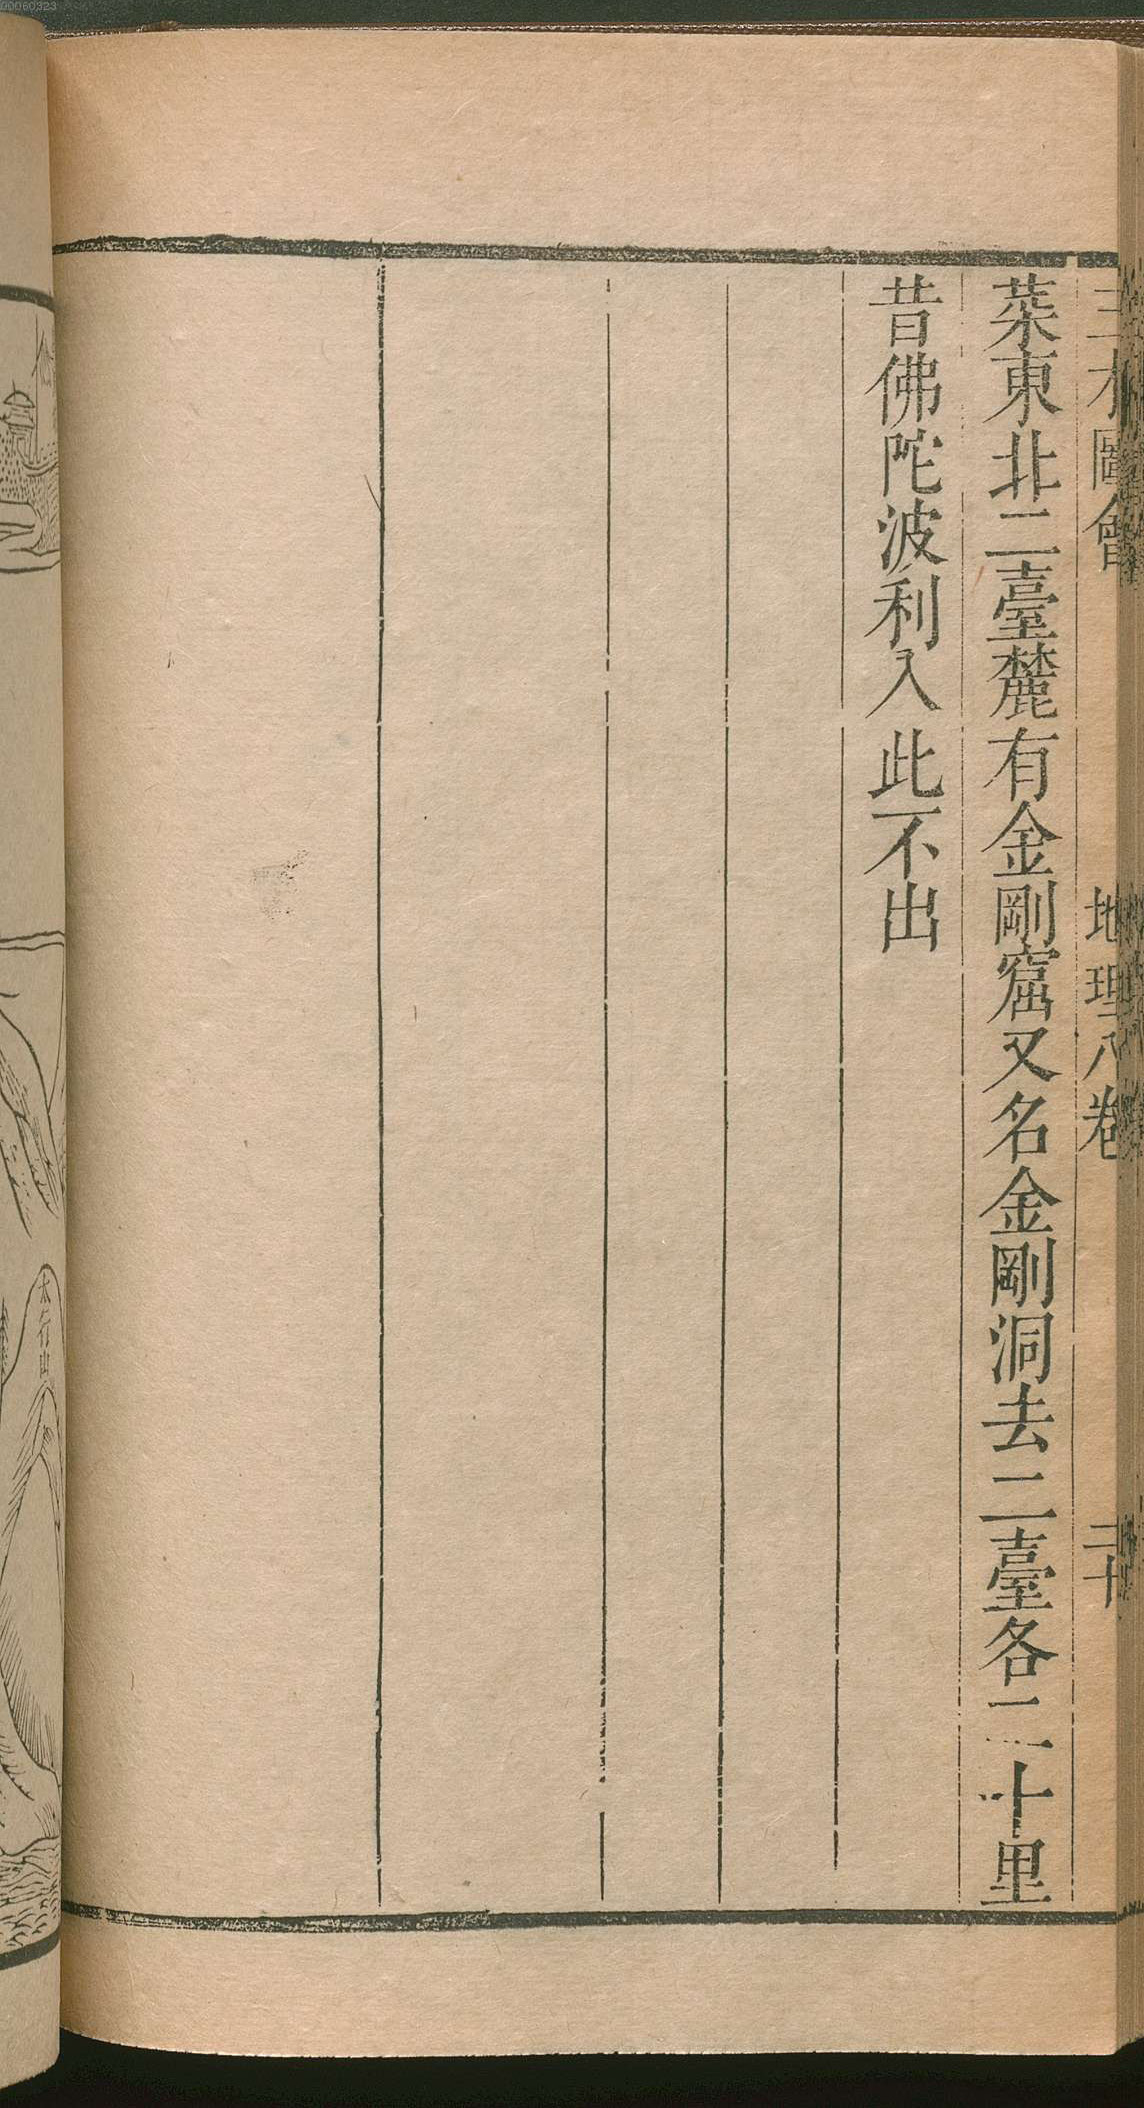 三才圖會 地理八卷 三十
蕖東北二臺麓有金剛窟又名金剛洞去二臺各二十里
昔佛陀波利入此不出
太行山
00060323